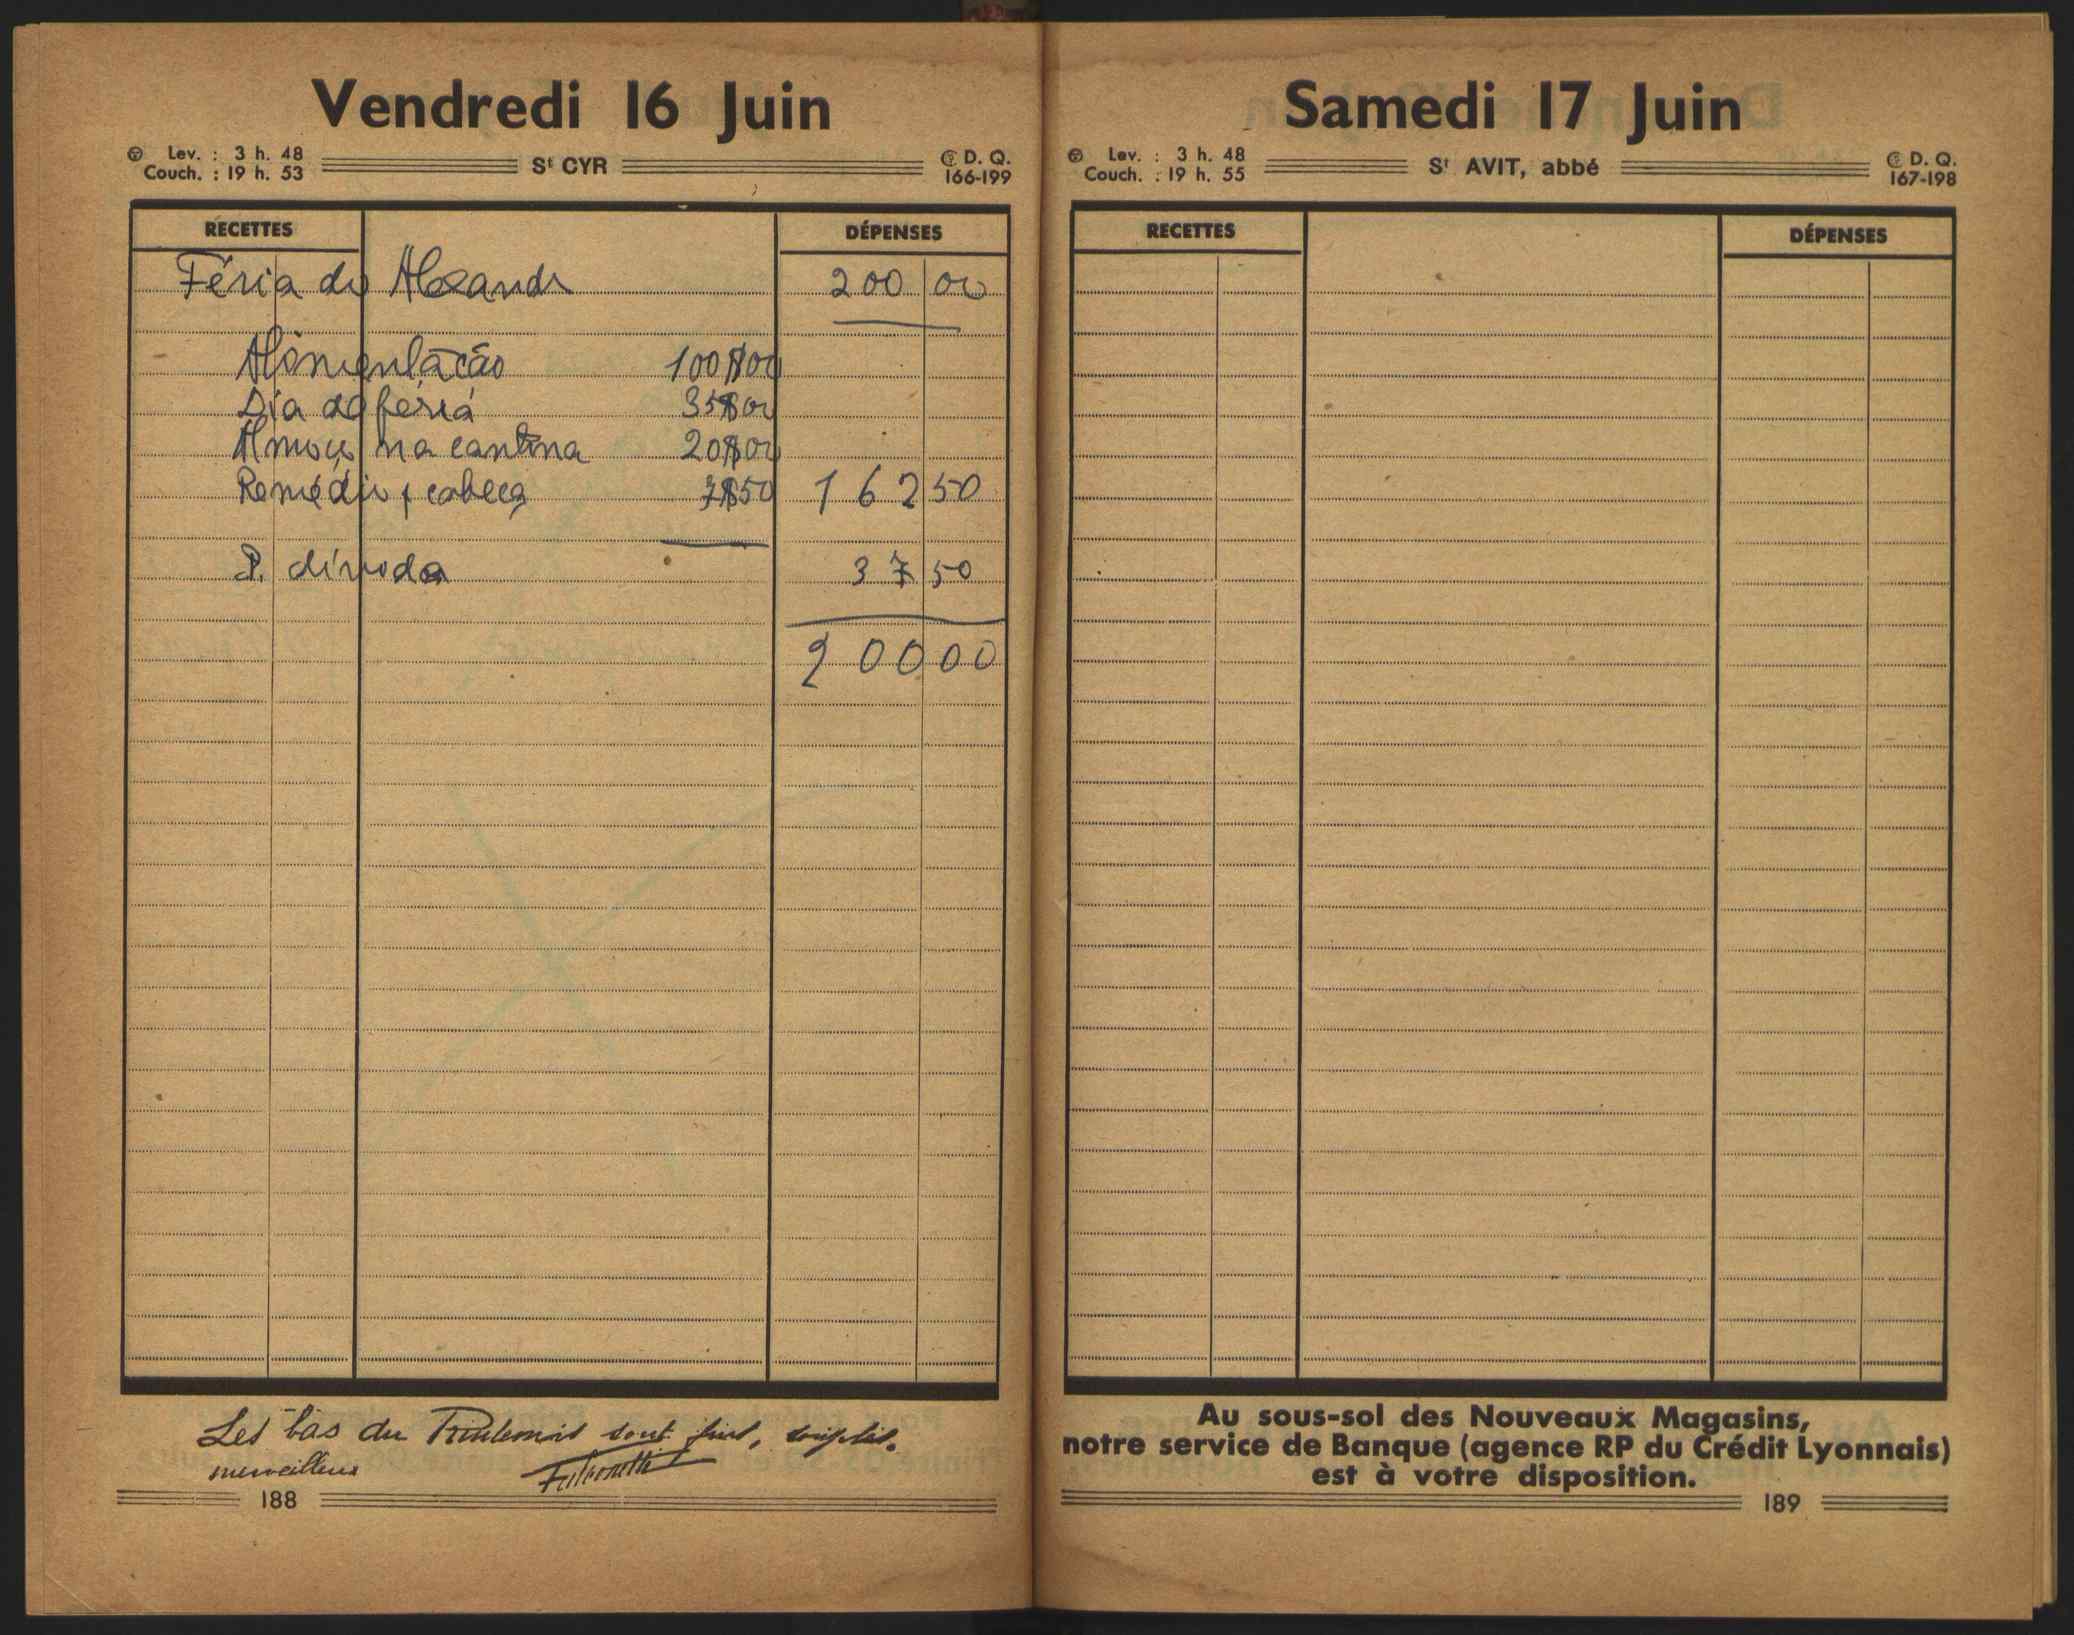 Vendredi 16 Juin
Lev. : 3 h. 48
Couch. : 19 h. 53
St CYR
D. Q.
166-199
RECETTES
DÉPENSES
Féria do Alexandre 200 00
Alimentação 100$00
Dia da féria 35$00
Almoço na cantina 20$00
Remédio p cabeça 7$50 162 50
P. dívida 37 50
200 00
Les bas du Printemps sont fins, souples,
merveilleux
188
Samedi 17 Juin
Lev. : 3 h. 48
Couch. : 19 h. 55
St AVIT, abbé
D. Q.
167-198
RECETTES
DÉPENSES
Au sous-sol des Nouveaux Magasins,
notre service de Banque (agence RP du Crédit Lyonnais)
est à votre disposition.
189